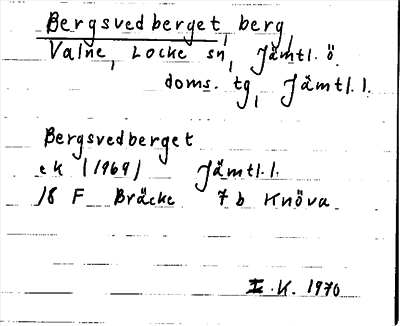 Bergsvedberget, berg,
Valne, Locke sn, Jämtl. ö.
doms. tg, Jämtl. l.
Bergsvedberget
ek (1969) Jämtl. l.
18 F Bräcke 7 b Knöva
I. K. 1970